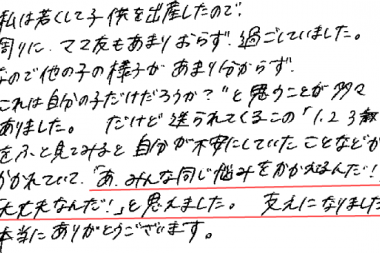 私は若くして子供を出産したので、
周りに、ママ友もあまりおらず、過ごしていました。
なので他の子の様子があまり分からず、
これは自分の子だけだろうか?”と思うことが多々
ありました。 だけど送られてくるこの「1.2.3歳
をふと見てみると自分が不安にしていたことなどが
かかれていて、「あ、みんな同じ悩みをかかえるんだ!
大丈夫なんだ!」と思えました。 支えになりました
本当にありがとうございます。